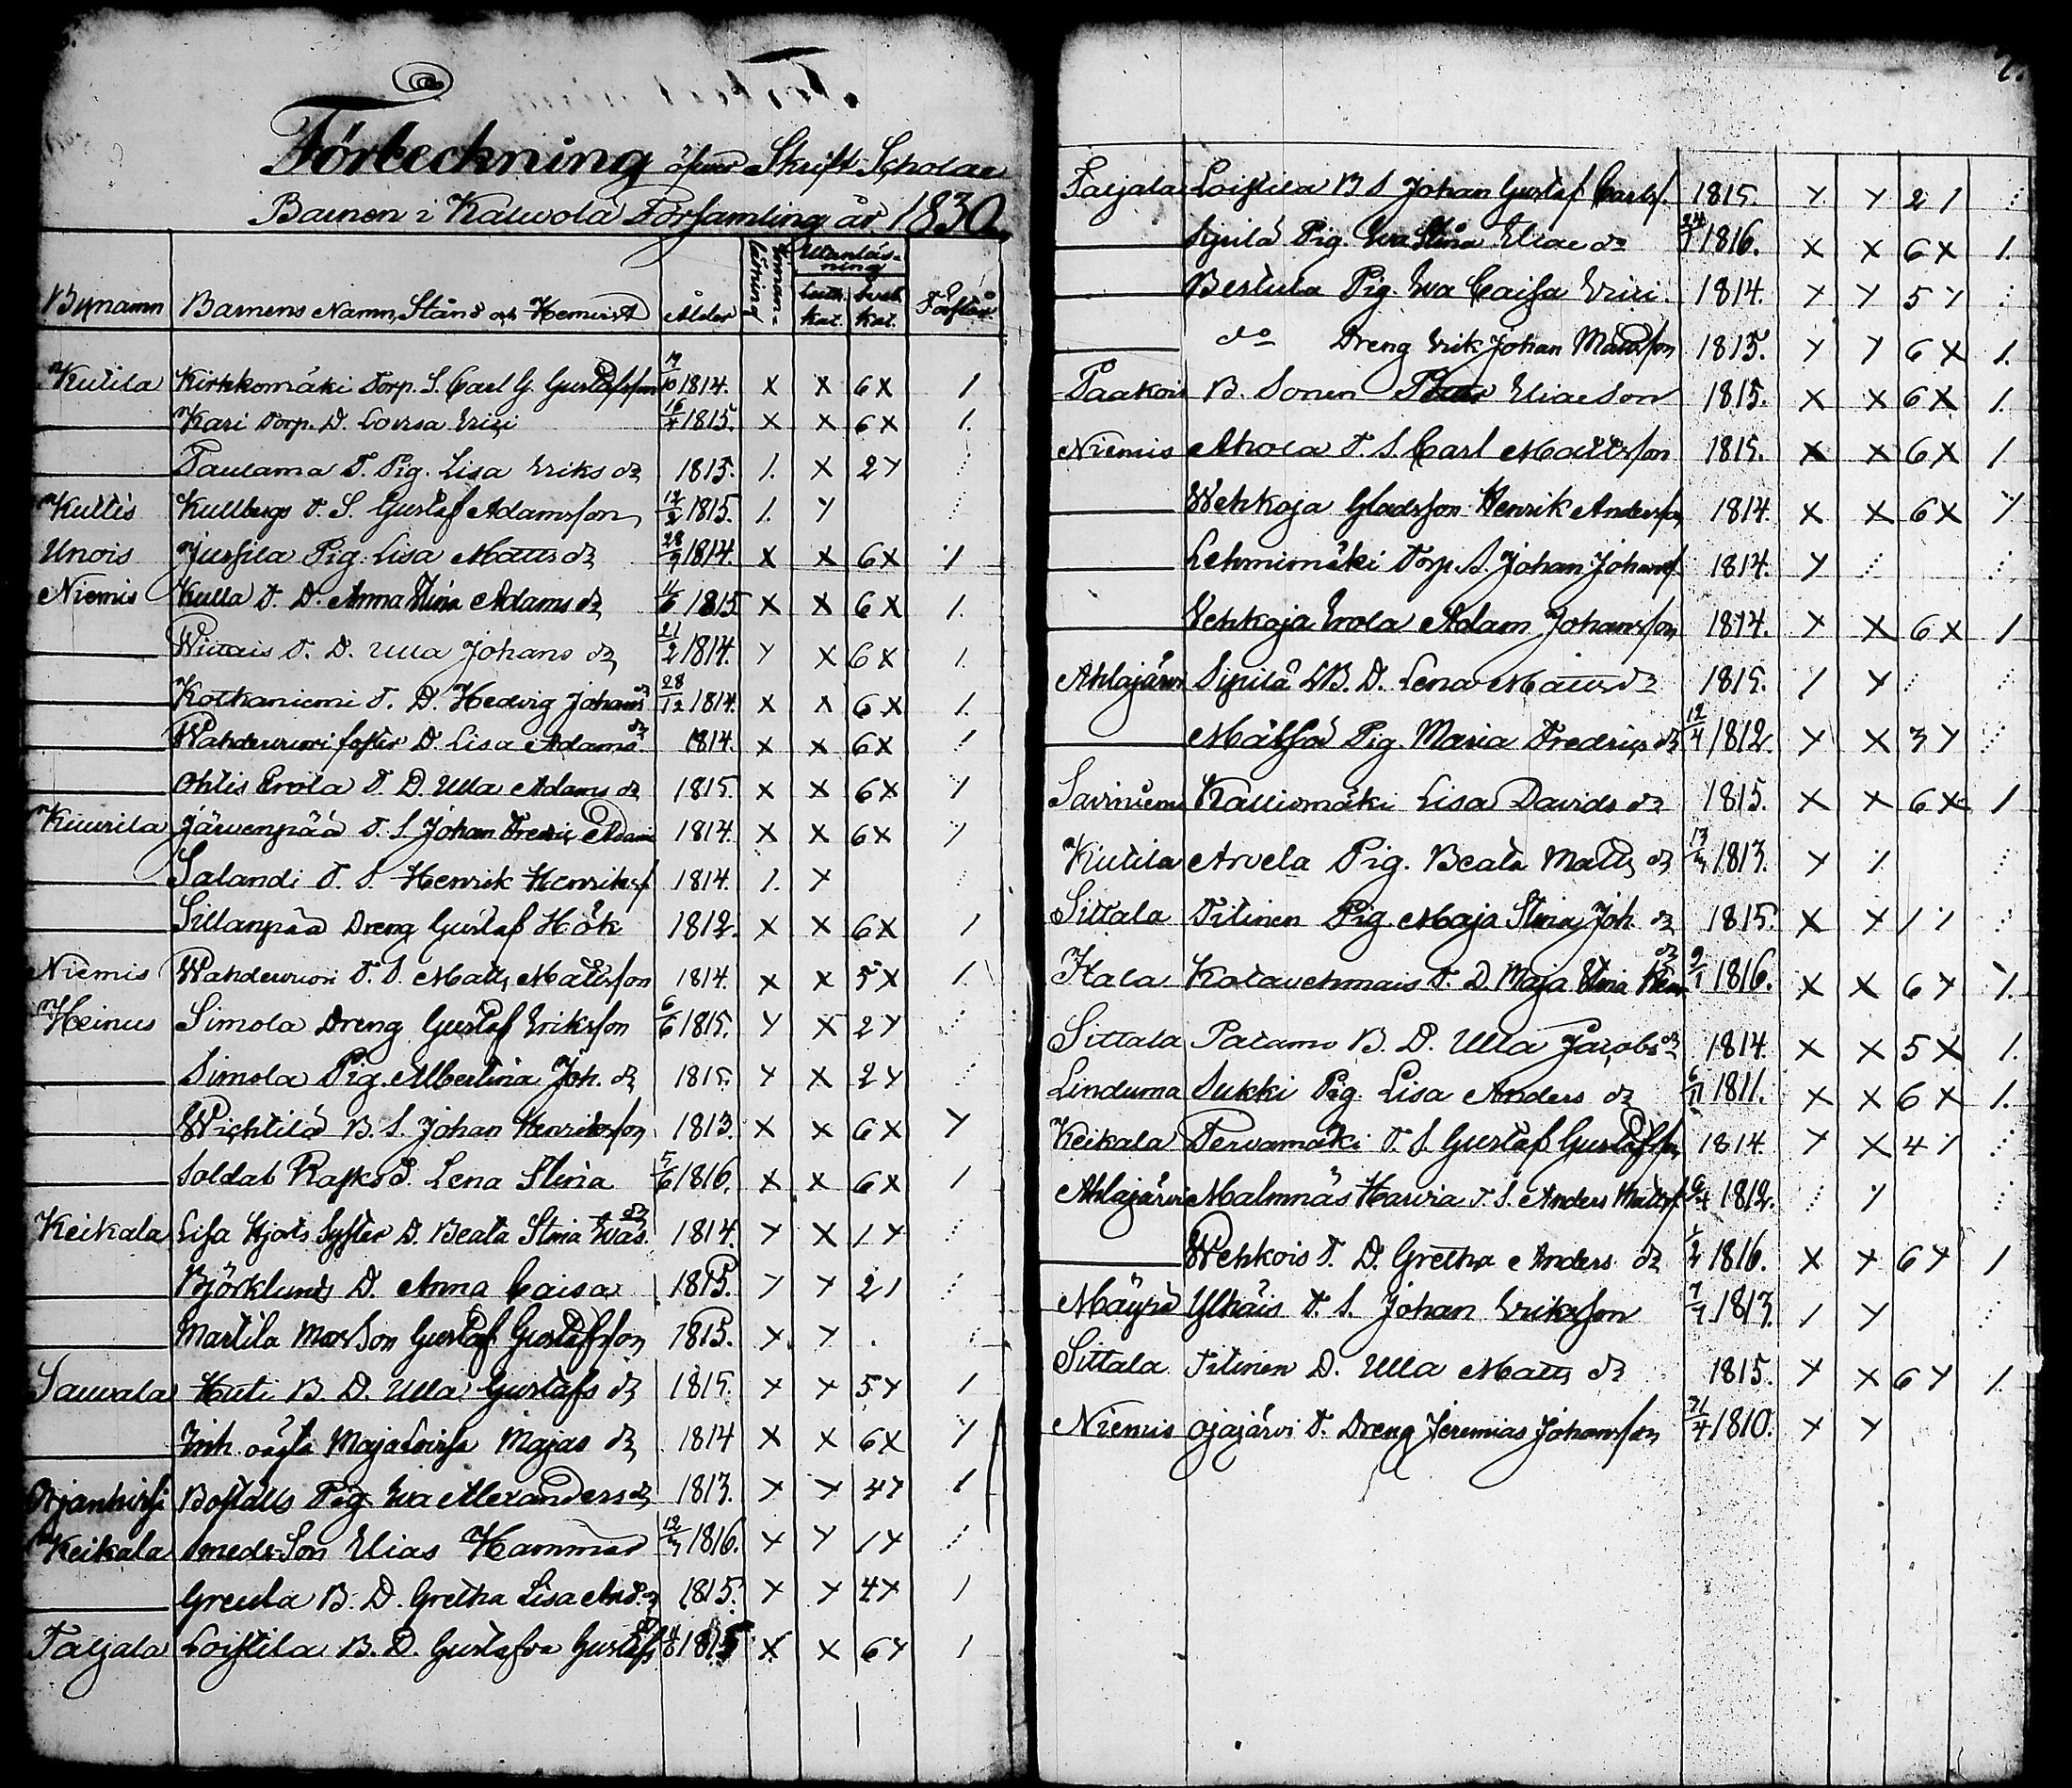 Förteckning öfver Skrift-Scholae
Barnen i Kalwola Församling år 1830.
Bynamn Barnens Namn, Stånd och Hemvist Ålder Innan-läsning Utanläs-ning Luth. kat. Sveb. kat. Förstår
Kutila Kirkkomäki Torp. S. Carl G. Gustafsson 1814. x x 6x /
Kari Torp. D. Lovisa Erici 1815. x x 6x /.
Taulama T. Pig. Lisa Eriks dr 1815. /. x 2y
Kultis Kullbergs T. S. Gustaf Adamsson 12/2 1815. /. y
Unois Jussila Pig. Lisa Matts dr 1814. x x 6x /
Niemis Kulla T. D. Anna Stina Adams dr 11/6 1815 x x 6x /.
T. D. Ulla Johans dr 21/2 1814. y x 6x /.
Kotkaniemi T. D. Hedvig Johans dr 28/12 1814. x x 6x /.
Wahdervuori foster D. Lisa Adams dr 1814. x x 6x /
Ohtis Erola T. D. Ulla Adams dr 1815. x x 6x /
Kiurila Järvenpää T. S. Johan Fredric Adams 1814. x x 6x /
Salandi T. S. Henrik Henrikss 1814. /. y
Sillanpää Dreng Gustaf Hök 1812. x x 6x /
Niemis Wahdervuori T. S. Matts Mattsson 1814. x x 5x /.
Heinus Simola Dreng Gustaf Eriksson 6/6 1815. y x 2y
Simola Pig. Albertina Joh. dr 1815. y x 2y
Wichtilä B. S. Johan Henriksson 1813. x x 6x y
Soldat Rasks D. Lena Stina 5/6 1816. x x 6x /
Keikala Lisa Hjorts Syster D. Beata Stina Evas dr 1814. y x 1y
Björklunds D. Anna Caisa 1815. y y 2/
Martila Gustaf Gustafsson 1815. y y
Sauvala Huti B. D. Ulla Gustafs dr 1815. y y 5y /
Inh. Maja Lovisa Majas dr 1814 x x 6x y
Orjanhirsi Boställs Pig. Eva Alexanders dr 1813. y y 4y /
Keikala Smeds Son Elias Hammar 1816. y y 1y
Greula B. D. Gretha Lisa And. dr 1815. y y 4x /
Taljala Loistila B. D. Gustafva Gustafs dr 1815 x x 6y /
Taljala Loistila B S Johan Gustaf Carlss. 1815. y y 2/
Sipilä Pig. Eva Stina Eliae dr 24/1 1816. x x 6x /.
Bertula Pig. Eva Caisa Erici 1814. y y 5y
do Dreng Erik Johan Mattsson 1815. y y 6x /.
Paakois B. Sonen Eliaeson 1815. x x 6x /.
Niemis Ahola T. S. Carl Mattsson 1815. x x 6x /
Wehkoja Henrik Andersson 1814. x x 6x y
Lehmimäki Torp. S. Johan Johanss. 1814. y
Vehkoja Erola Adam Johansson 1814. y x 6x /
Ahlajärvi Sipilä B. D. Lena Matts dr 1815. / y
Pig. Maria Fredrics dr 12/4 1812. y x 3y
Savniemi Kalliomäki Lisa Davids dr 1815. x x 6x /
Kutila Arvela Pig. Beata Matts dr 1813. y /
Sittala Titinen Pig. Maja Stina Joh. dr 1815. x y //
Hala T. D. Maja Stina dr 9/1 1816. x x 6y /.
Sittala Palamo B. D. Ulla Jacobs dr 1814. x x 5x /.
Linduma Sukki Pig. Lisa Anders dr 6/11 1811. x x 6x /.
Keikala Tervamäki T. S. Gustaf Gustafsson 1814. y x 4/
Ahlajärvi Malmnäs Harvia T. S. Anders Mattss. 1812. /
Wehkois T. D. Gretha Anders dr 1/2 1816. x y 6y /
Mäyrä Ylhäis T. S. Johan Eriksson 1813. / y
Sittala Titinen D. Ulla Matts dr 1815. y x 6y /.
Niemis Ojajärvi T. Dreng Jeremias Johansson 1810. y y